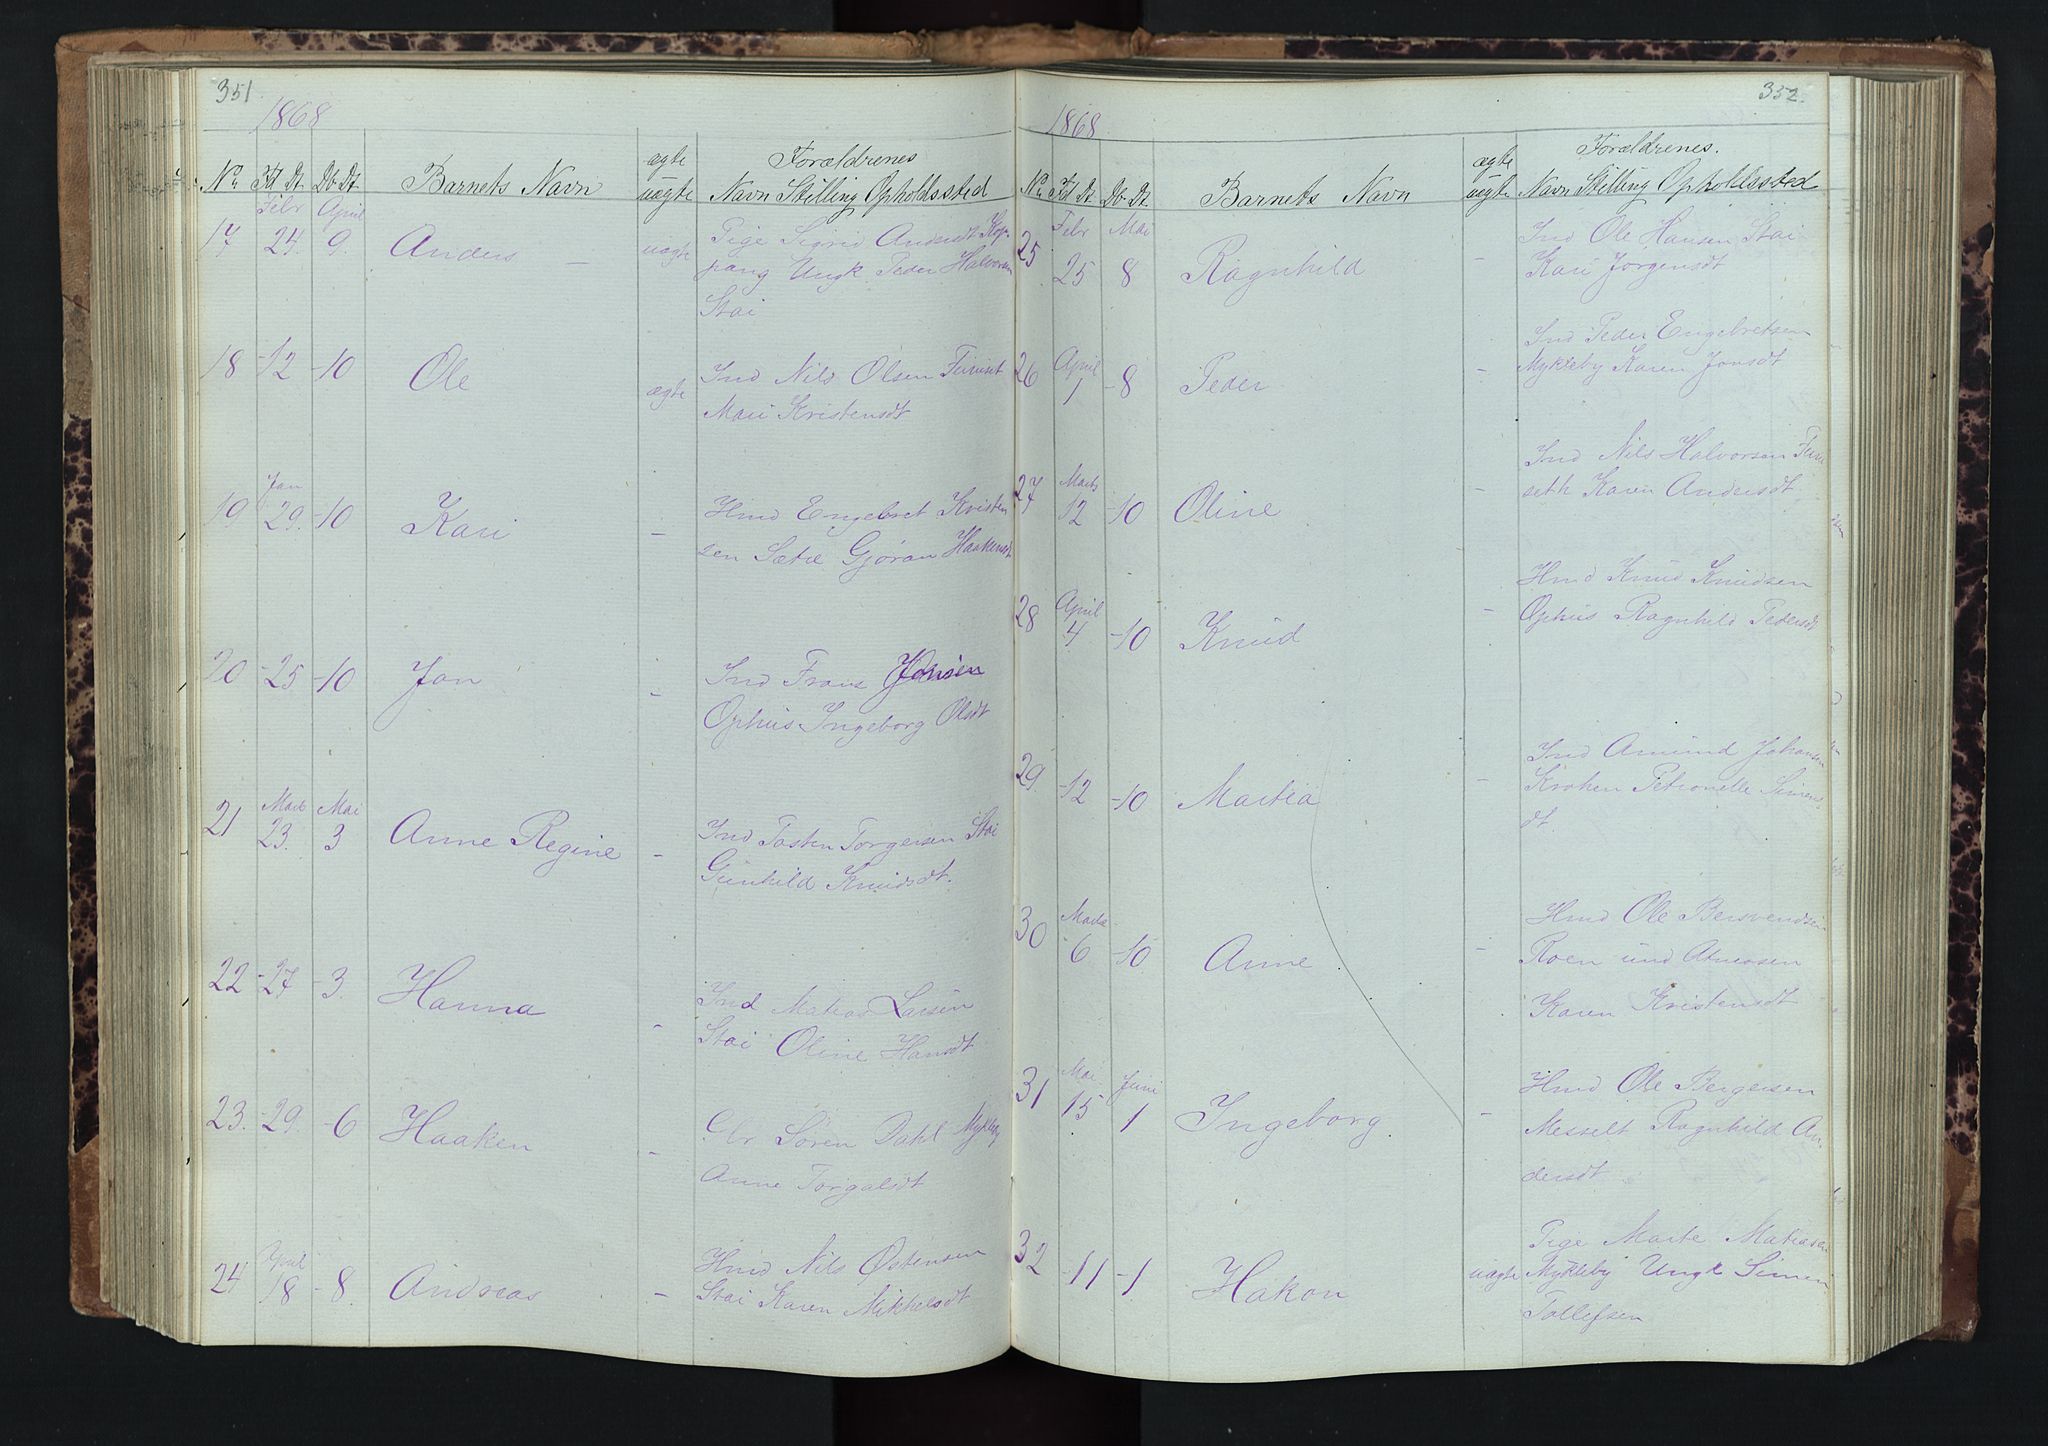 351
1868
No Fd Dt. Db Dt. Barnets Navn ægte uægte Forældrenes Navn Stilling Opholdssted
Febr April
17 24. 9. Anders — uægte Pige Sigrid Andersdt Kop-
pang Ungk Peder Halvorsen
Stai
18 -12 -10 Ole ægte Ind Nils Olsen Furuset
Mari Kristensdt
Jan
19 29. -10 Kari — Hmd Engebret Kristen
sen Sætre Gjøran Haakensdt
20 -25 -10 Jon — Ind Frans Jonsen
Ophus Ingeborg Olsdt
Marts Mai
21 23. 3 Anne Regine — Ind Tosten Torgersen Stai
Gunhild Knudsdt.
22 -27 -3. Hanna — Ind Matias Larsen
Stai Oline Hansdt
23. -29. -6 Haaken — Søren Dahl Mykleby
Anne Torgalsdt
April
24 18 -8. Andreas — Hmd Nils Østensen
Stai Karen Mikkelsdt
352.
1868
No Fd Dt. Db Dt. Barnets Navn ægte uægte Forældrenes. Navn Stilling Opholdssted
Febr Mai
25 25 8 Ragnhild — Ind Ole Hansen Stai
Kari Jørgensdt
April
26 1 -8 Peder — Ind Peder Engebretsen
Mykleby Karen Jonsdt
Marts
27 12 -10 Oline — Ind Nils Halvorsen Furu
seth Karen Andersdt
April
28 4 -10 Knud — Hmd Knud Knudsen
Ophus Ragnhild Pedersdt
29. -12 -10 Martea — Ind Amund Johansen
Kroken Petronelle Simens
dt.
Marts
30 6 -10 Anne — Hmd Ole Bersvendsen
Roen und Atneosen
Karen Kristensdt
Mai Juni
31 15 1 Ingeborg — Hmd Ole Bergersen
Messelt Ragnhild An
dersdt
32 -11 -1 Hakon uægte Pige Marte Matiasen
Mykleby Ungk Simen
Tollefsen